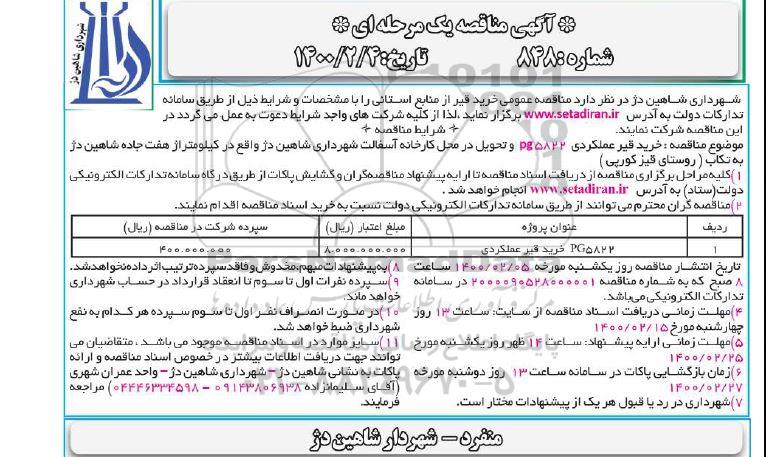 ❊ آگهی مناقصه یک مرحله ای ❊
شماره :۸۴۸ تاریخ:۱۴۰۰/۲/۴
شهرداری شاهین دژ
شهرداری شاهین دژ در نظر دارد مناقصه عمومی خرید قیر از منابع استانی را با مشخصات و شرایط ذیل از طریق سامانه
تدارکات دولت به آدرس www.setadiran.ir برگزار نماید .لذا از کلیه شرکت های واجد شرایط دعوت به عمل می گردد در
این مناقصه شرکت نمایند. ÷ شرایط مناقصه ÷
موضوع مناقصه : خرید قیر عملکردی pg ۵۸۲۲ و تحویل در محل کارخانه آسفالت شهرداری شاهین دژ واقع در کیلومتراژ هفت جاده شاهین دژ
به تکاب ( روستای قیز کورپی )
۱)کلیه مراحل برگزاری مناقصه از دریافت اسناد مناقصه تا ارایه پیشنهاد مناقصه‌گران و گشایش پاکات از طریق درگاه سامانه تدارکات الکترونیکی
دولت(ستاد) به آدرس www.setadiran.ir انجام خواهد شد .
۲)مناقصه گران محترم می توانند از طریق سامانه تدارکات الکترونیکی دولت نسبت به خرید اسناد مناقصه اقدام نمایند.
ردیف عنوان پروژه مبلغ اعتبار (ریال) سپرده شرکت در مناقصه (ریال)
۱ PG۵۸۲۲ خرید قیر عملکردی ۸.۰۰۰.۰۰۰.۰۰۰ ۴۰۰.۰۰۰.۰۰۰
تاریخ انتشار مناقصه روز یکشنبه مورخه ۱۴۰۰/۰۲/۰۵ ساعت
۸ صبح که به شماره مناقصه ۲۰۰۰۰۹۰۵۲۸۰۰۰۰۰۱ در سامانه
تدارکات الکترونیکی می‌باشد.
۴)مهلت زمانی دریافت اسناد مناقصه از سایت: ساعت ۱۳ روز
چهارشنبه مورخ ۱۴۰۰/۰۲/۱۵
۵)مهلت زمانی ارایه پیشنهاد: ساعت ۱۴ ظهر روز یکشنبه مورخ
۱۴۰۰/۰۲/۲۵
۶)زمان بازگشایی پاکات در سامانه ساعت ۱۳ روز دوشنبه مورخه
۱۴۰۰/۰۲/۲۷
۷)شهرداری در رد یا قبول هر یک از پیشنهادات مختار است.
۸)به پیشنهادات مبهم، مخدوش و فاقد سپرده ترتیب اثر داده نخواهد شد.
۹)سپرده نفرات اول تا سوم تا انعقاد قرارداد در حساب شهرداری
خواهد ماند.
۱۰)در صورت انصراف نفر اول تا سوم سپرده هر کدام به نفع
شهرداری ضبط خواهد شد.
۱۱)سایر موارد در اسناد مناقصه موجود می باشد . متقاضیان می
توانند جهت دریافت اطلاعات بیشتر در خصوص اسناد مناقصه و ارائه
پاکات به نشانی شاهین دژ – شهرداری شاهین دژ – واحد عمران شهری
(آقای سلیمانزاده ۰۹۱۴۳۸۰۶۹۳۸ – ۰۴۴۴۶۳۳۴۵۹۸) مراجعه
فرمایند.
منفرد – شهردار شاهین دژ